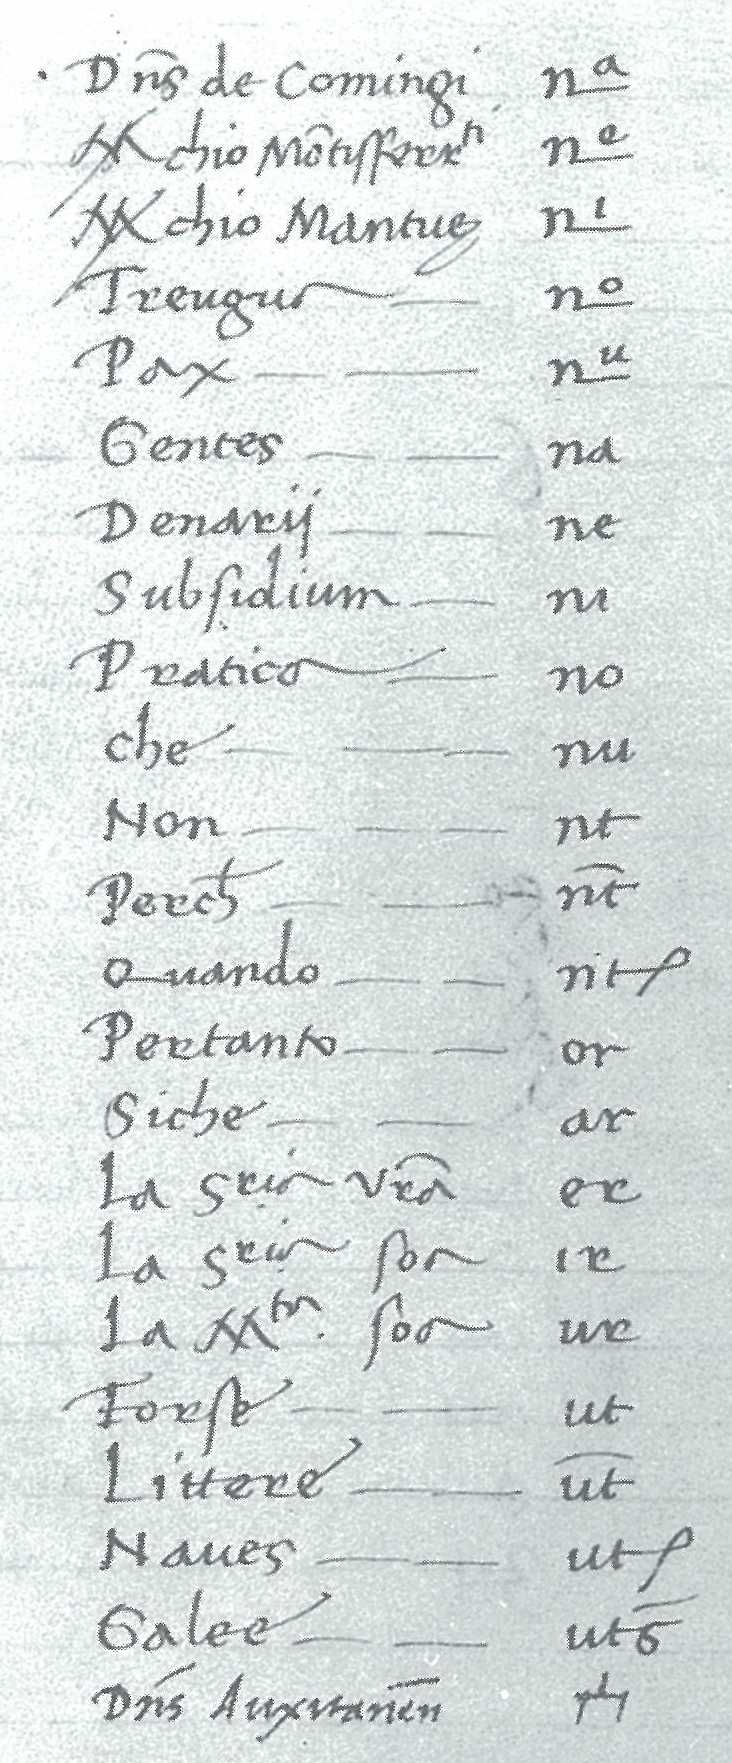 Dn̄s de Comingi nᵃ
Mchio Mōtisferrⁱⁱ nᵉ
Mchio Mantue nⁱ
Treugue nᵒ
Pax nᵘ
Gentes na
Denarij ne
Subsidium ni
Pratico no
che nu
Non nt
Perch nt̄
Quando ntſ
Pertanto or
Siche ar
La Sria vrā er
La Sria soa ir
La Mᵗᵃ soa ur
Forse ut
Littere ut̄
Naues utſ
Galee
Dn̄s Auxitanēn